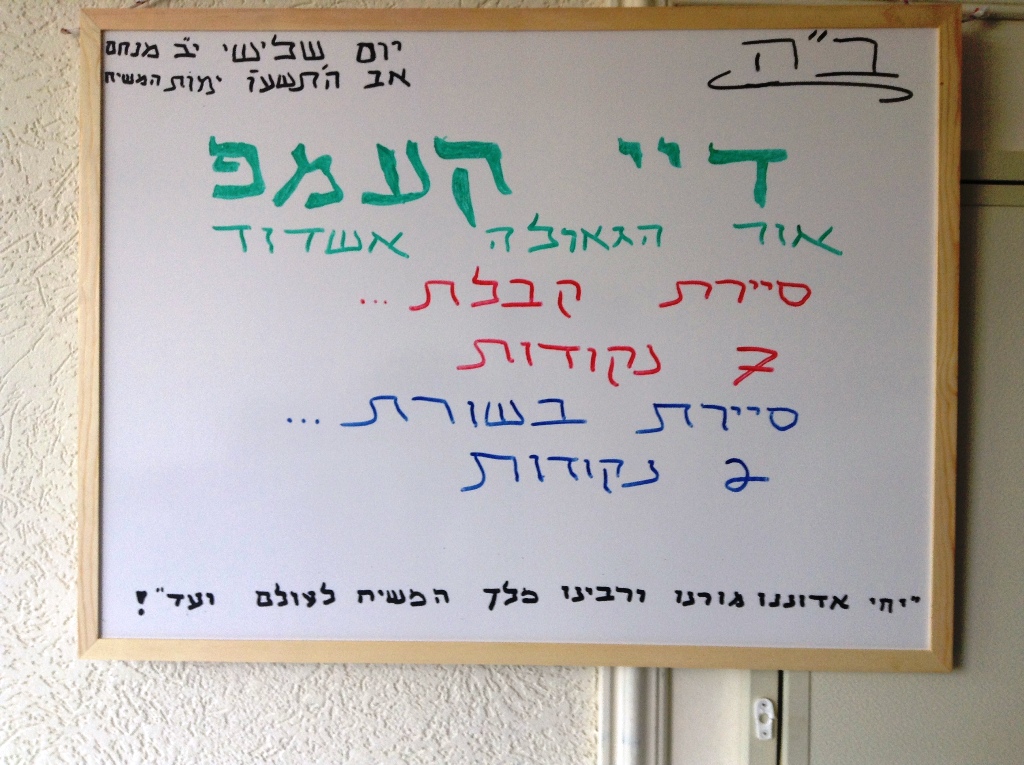 ב"ה
יום שלישי י"ב מנחם
אב ה'תשע"ו ימות המשיח
דיי קעמפ
אור הגאולה אשדוד
סיירת קבלת...
7 נקודות
סיירת בשורת...
2 נקודות
"יחי אדוננו מורנו ורבינו מלך המשיח לעולם ועד"!